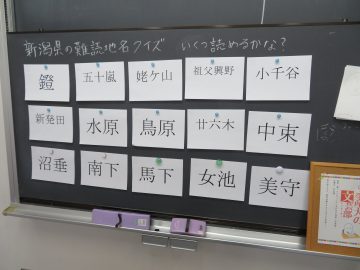 新潟県の難読地名クイズ いくつ読めるかな?
鐙 五十嵐 姥ケ山 祖父興野 小千谷
新発田 水原 鳥原 廿六木 中束
沼垂 南下 馬下 女池 美守